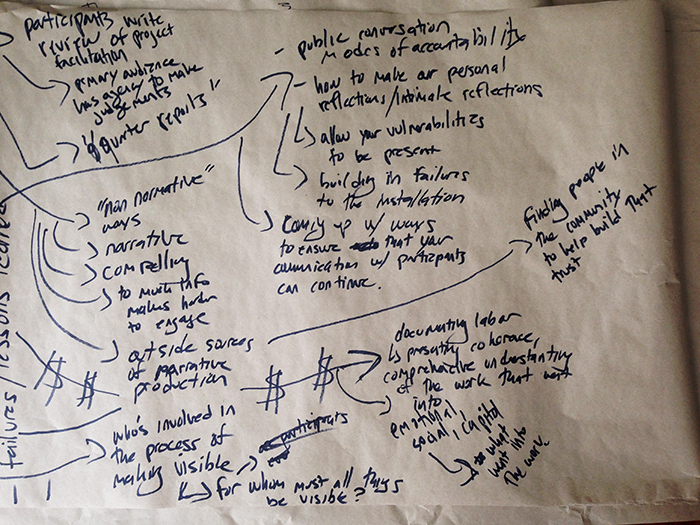 participants write
review of project
facilitation
primary audience
has agency to make
judgements
"quarter reports"
"non normative"
ways
narrative
compelling
to much info
makes harder
to engage
outside sources
of narrative
production
who's involved in
the process of
making visible
participants
for whom must all things
be visible?
- public conversation
modes of accountability
- how to make our personal
reflections/intimate reflections
allow your vulnerabilities
to be present
building in failures
to the installation
coming up w/ ways
to ensure that your
comunication w/ participants
can continue.
finding people in
the community
to help build that
trust
$ $ $ $
documenting labor
presenting coherence,
comprehensive understanding
of the work that went
into
emotional,
social, capital
what
went into
the work
failures/lessons learned